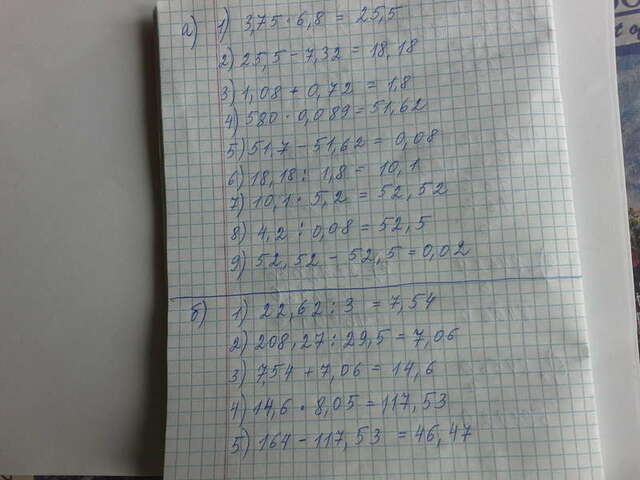 а) 1) 3,75 · 6,8 = 25,5
2) 25,5 - 7,32 = 18,18
3) 1,08 + 0,72 = 1,8
4) 580 · 0,089 = 51,62
5) 51,7 - 51,62 = 0,08
6) 18,18 : 1,8 = 10,1
7) 10,1 · 5,2 = 52,52
8) 4,2 : 0,08 = 52,5
9) 52,52 - 52,5 = 0,02
б) 1) 22,62 : 3 = 7,54
2) 208,27 : 29,5 = 7,06
3) 7,54 + 7,06 = 14,6
4) 14,6 · 8,05 = 117,53
5) 164 - 117,53 = 46,47